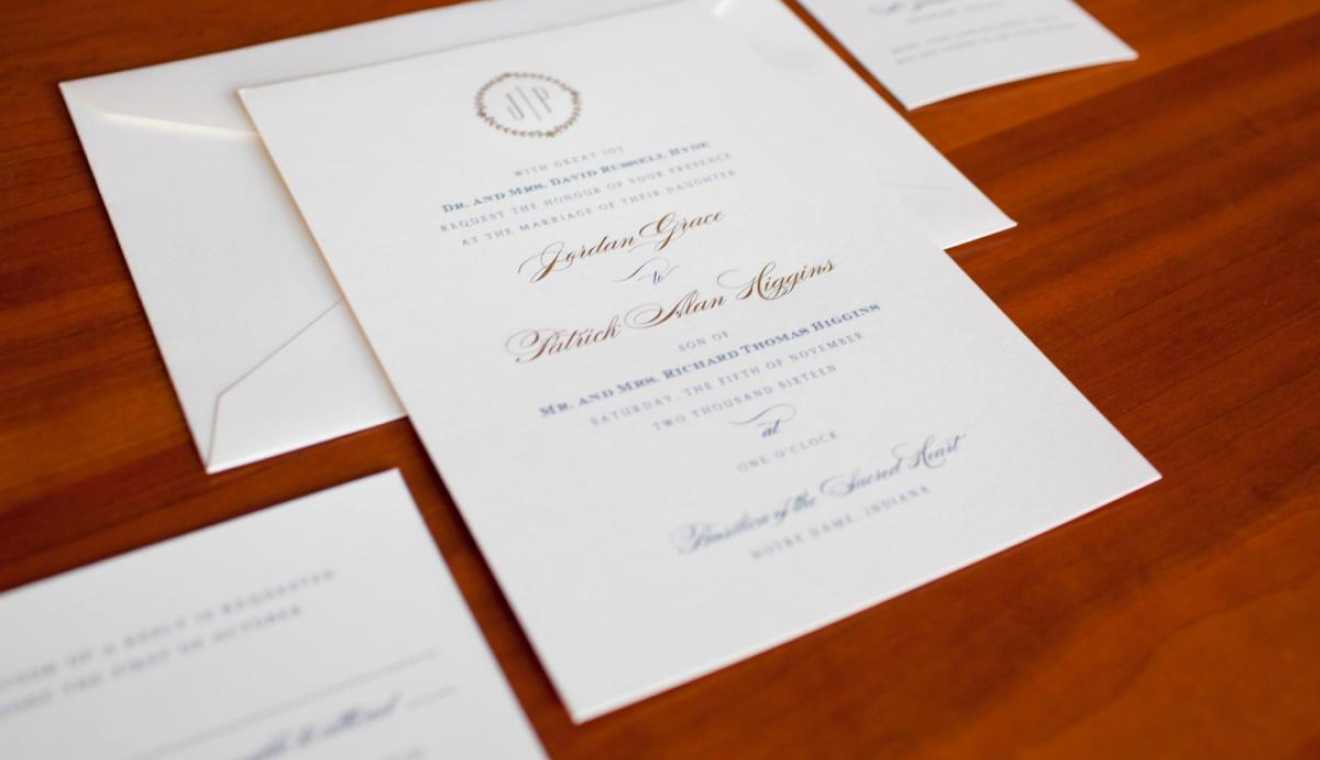 J|P
WITH GREAT JOY
DR. AND MRS. DAVID RUSSELL HYDE
REQUEST THE HONOUR OF YOUR PRESENCE
AT THE MARRIAGE OF THEIR DAUGHTER
Jordan Grace
to
Patrick Alan Higgins
SON OF
MR. AND MRS. RICHARD THOMAS HIGGINS
SATURDAY, THE FIFTH OF NOVEMBER
TWO THOUSAND SIXTEEN
at
ONE O'CLOCK
Basilica of the Sacred Heart
NOTRE DAME, INDIANA
OF A REPLY IS REQUESTED
THE FIRST OF OCTOBER
to attend